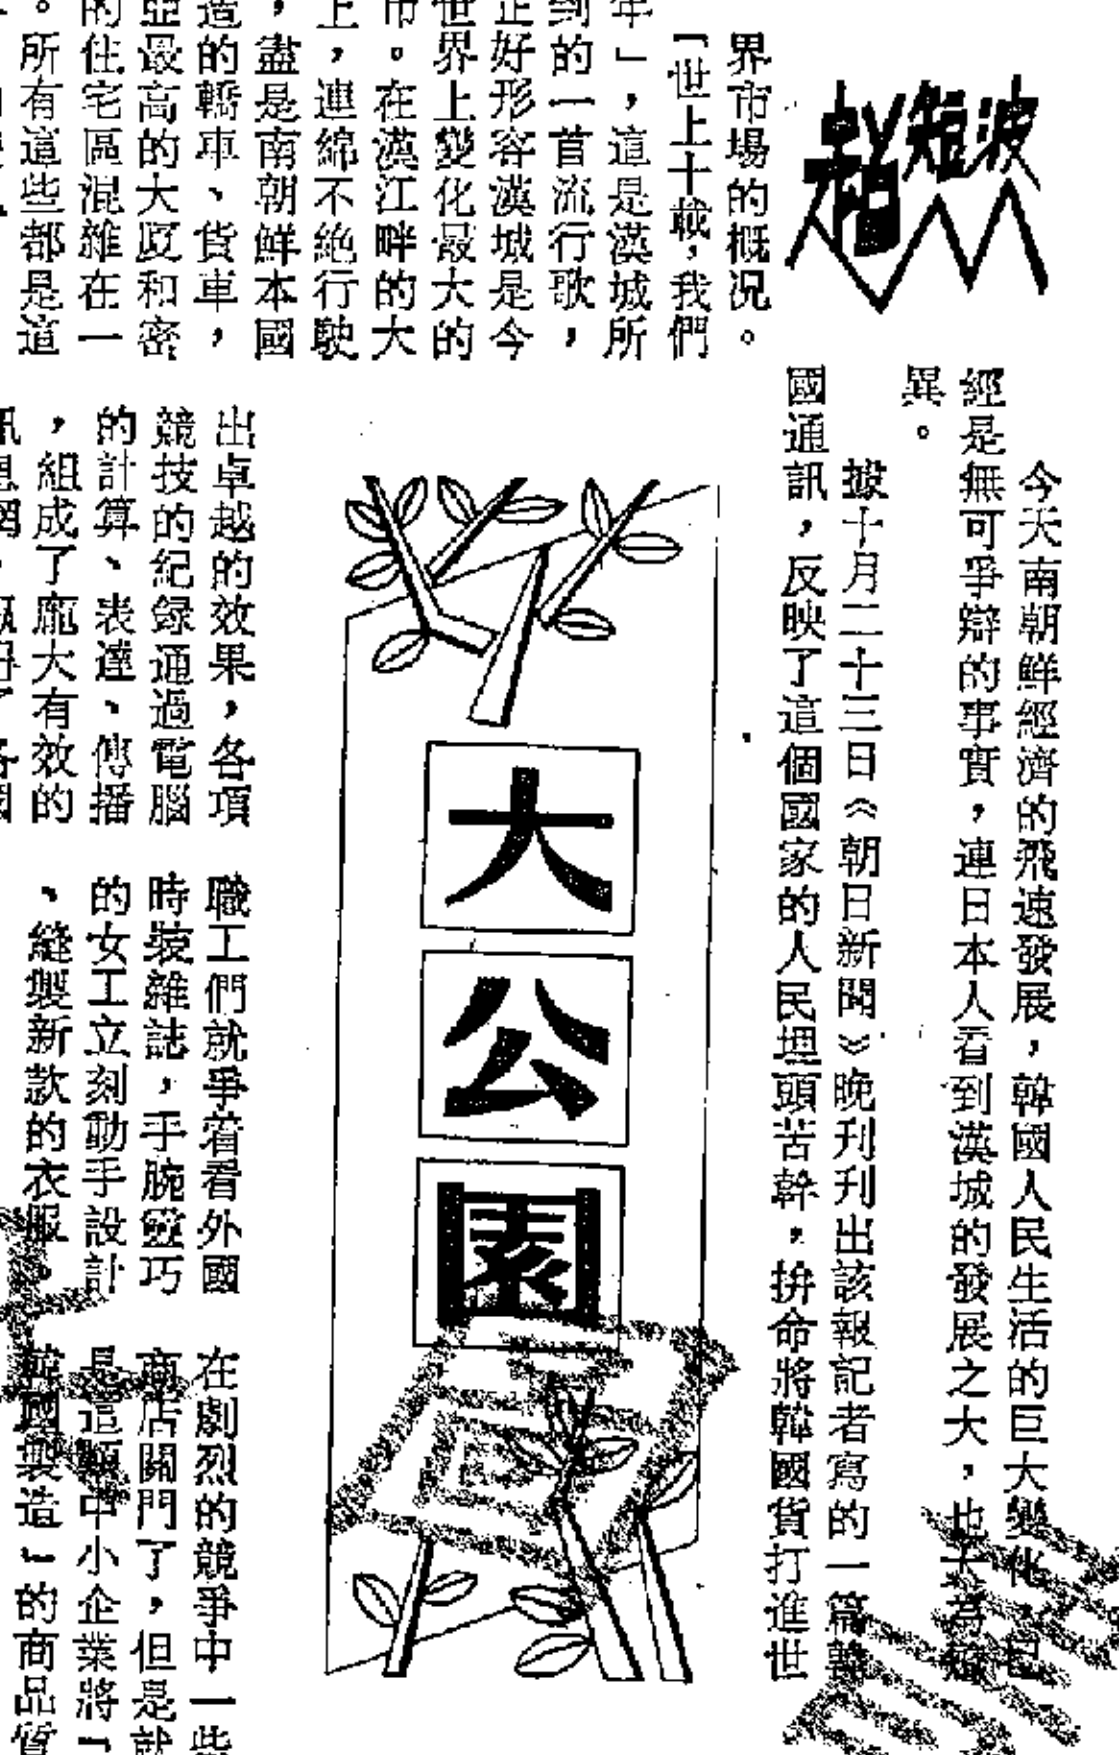 超短波
今天南朝鮮經濟的飛速發展，韓國人民生活的巨大變化，已
經是無可爭辯的事實，連日本人看到漢城的發展之大，也大為
異。
據十月二十三日《朝日新聞》晚刊刊出該報記者寫的一篇韓
國通訊，反映了這個國家的人民埋頭苦幹，拚命將韓國貨打進世
界市場的概況。
「世上十載，我們
年」，這是漢城所
到的一首流行歌，
正好形容漢城是今
世界上變化最大的
市。在漢江畔的大
上，連綿不絕行駛
，盡是南朝鮮本國
造的轎車、貨車，
亞最高的大廈和密
的住宅區混雜在一
。所有這些都是這
大公園
出卓越的效果，各項
競技的紀錄通過電腦
的計算、表達、傳播
，組成了龐大有效的
職工們就爭着看外國
時裝雜誌，手腕靈巧
的女工立刻動手設計
、縫製新款的衣服。
在劇烈的競爭中一些
商店關門了，但是就
是這類中小企業將「
韓國製造」的商品質